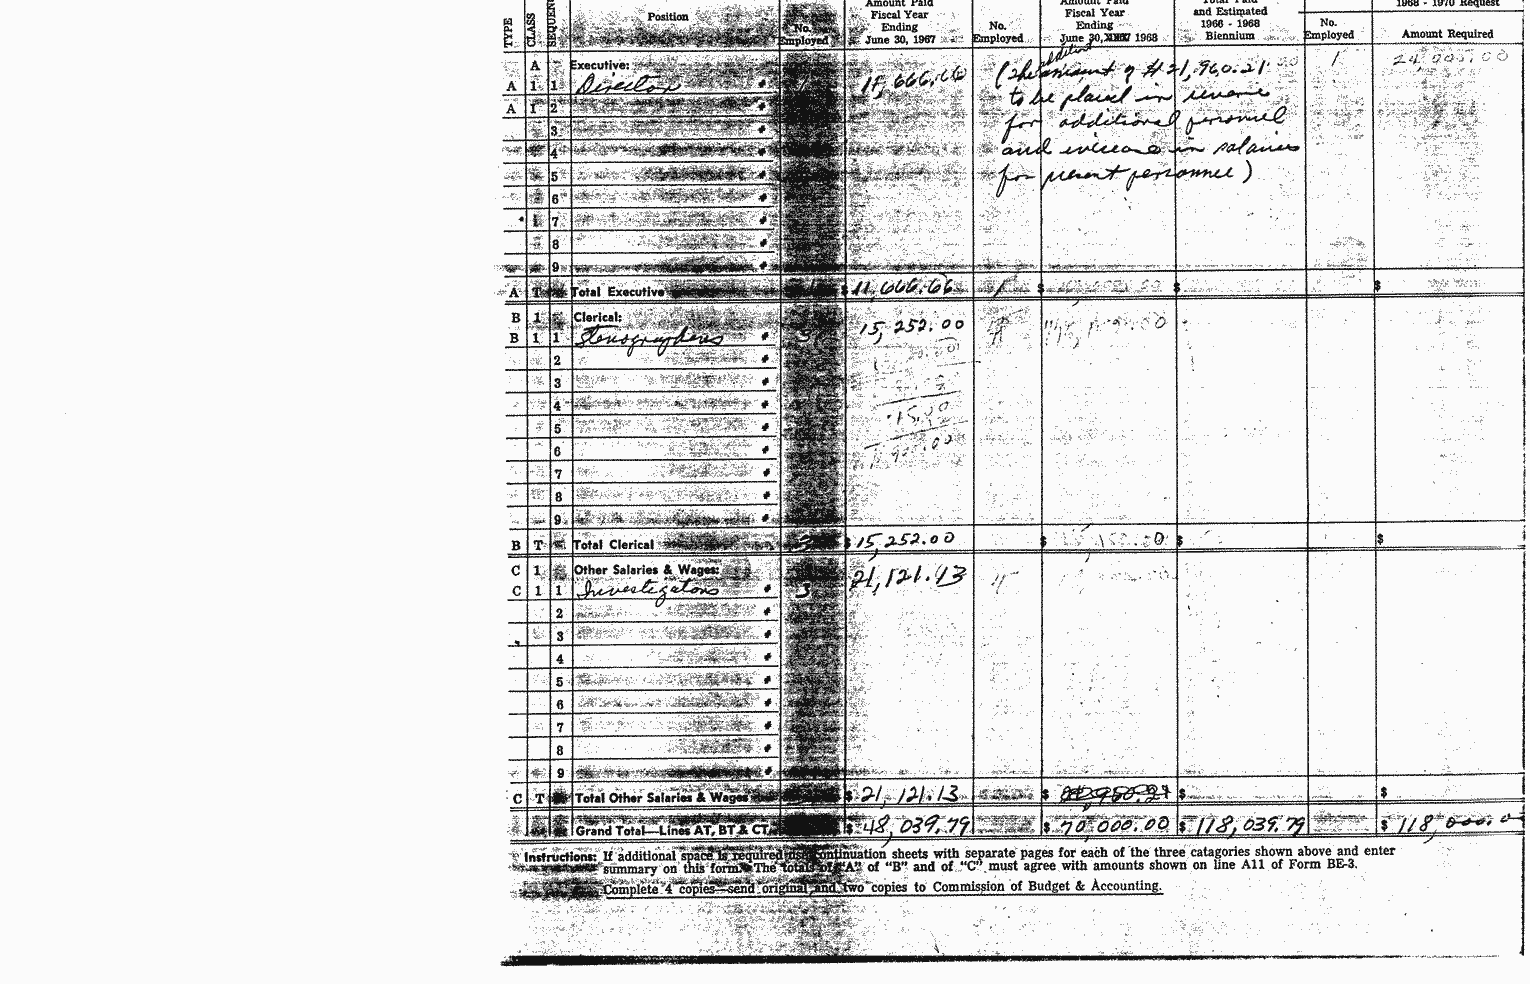 TYPE CLASS SEQUENCE Position No. Employed Amount Paid Fiscal Year Ending June 30, 1967 No. Employed Amount Paid Fiscal Year Ending June 30, 1968 Total Paid and Estimated 1966 - 1968 Biennium 1968 - 1970 Request No. Employed Amount Required
A Executive:
A 1 1 Director 11,666.66 1 24,000.00
(The amount of $21,960.21
additional
to be placed in reserve
for additional personnel
and increase in salaries
for present personnel)
A 1 2
3
4
5
6
1 7
8
9
A T Total Executive $ 11,666.66 1 $ $ $
B 1 Clerical:
B 1 1 Stenographers 3 15,252.00
2
3
4
5
6
7
8
9
B T Total Clerical 3 $ 15,252.00 $ $ $
C 1 Other Salaries & Wages:
C 1 1 Investigators 3 21,121.13
2
3
4
5
6
7
8
9
C T Total Other Salaries & Wages $ 21,121.13 $ $ $
Grand Total—Lines AT, BT & CT $ 48,039.79 $ 70,000.00 $ 118,039.79 $ 118,000.00
Instructions: If additional space is required use continuation sheets with separate pages for each of the three catagories shown above and enter
summary on this form. The totals of "A" of "B" and of "C" must agree with amounts shown on line A11 of Form BE-3.
Complete 4 copies—send original and two copies to Commission of Budget & Accounting.